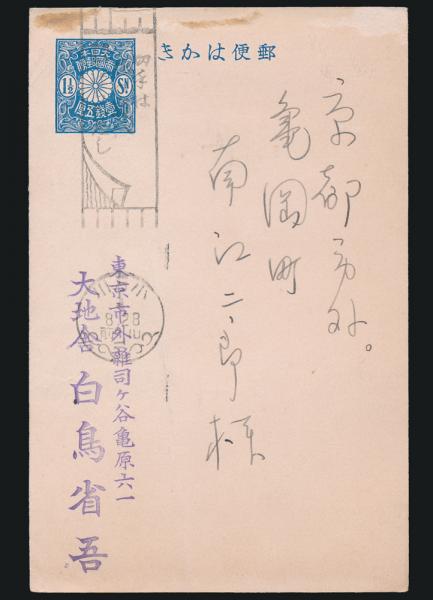 郵便はかき
大日本
帝國郵便
1½ Sn
壹錢五厘
切手は
京都市外。
亀岡町
南江二郎様
東京市外雑司ヶ谷亀原六一
大地舎 白鳥省吾
小石川